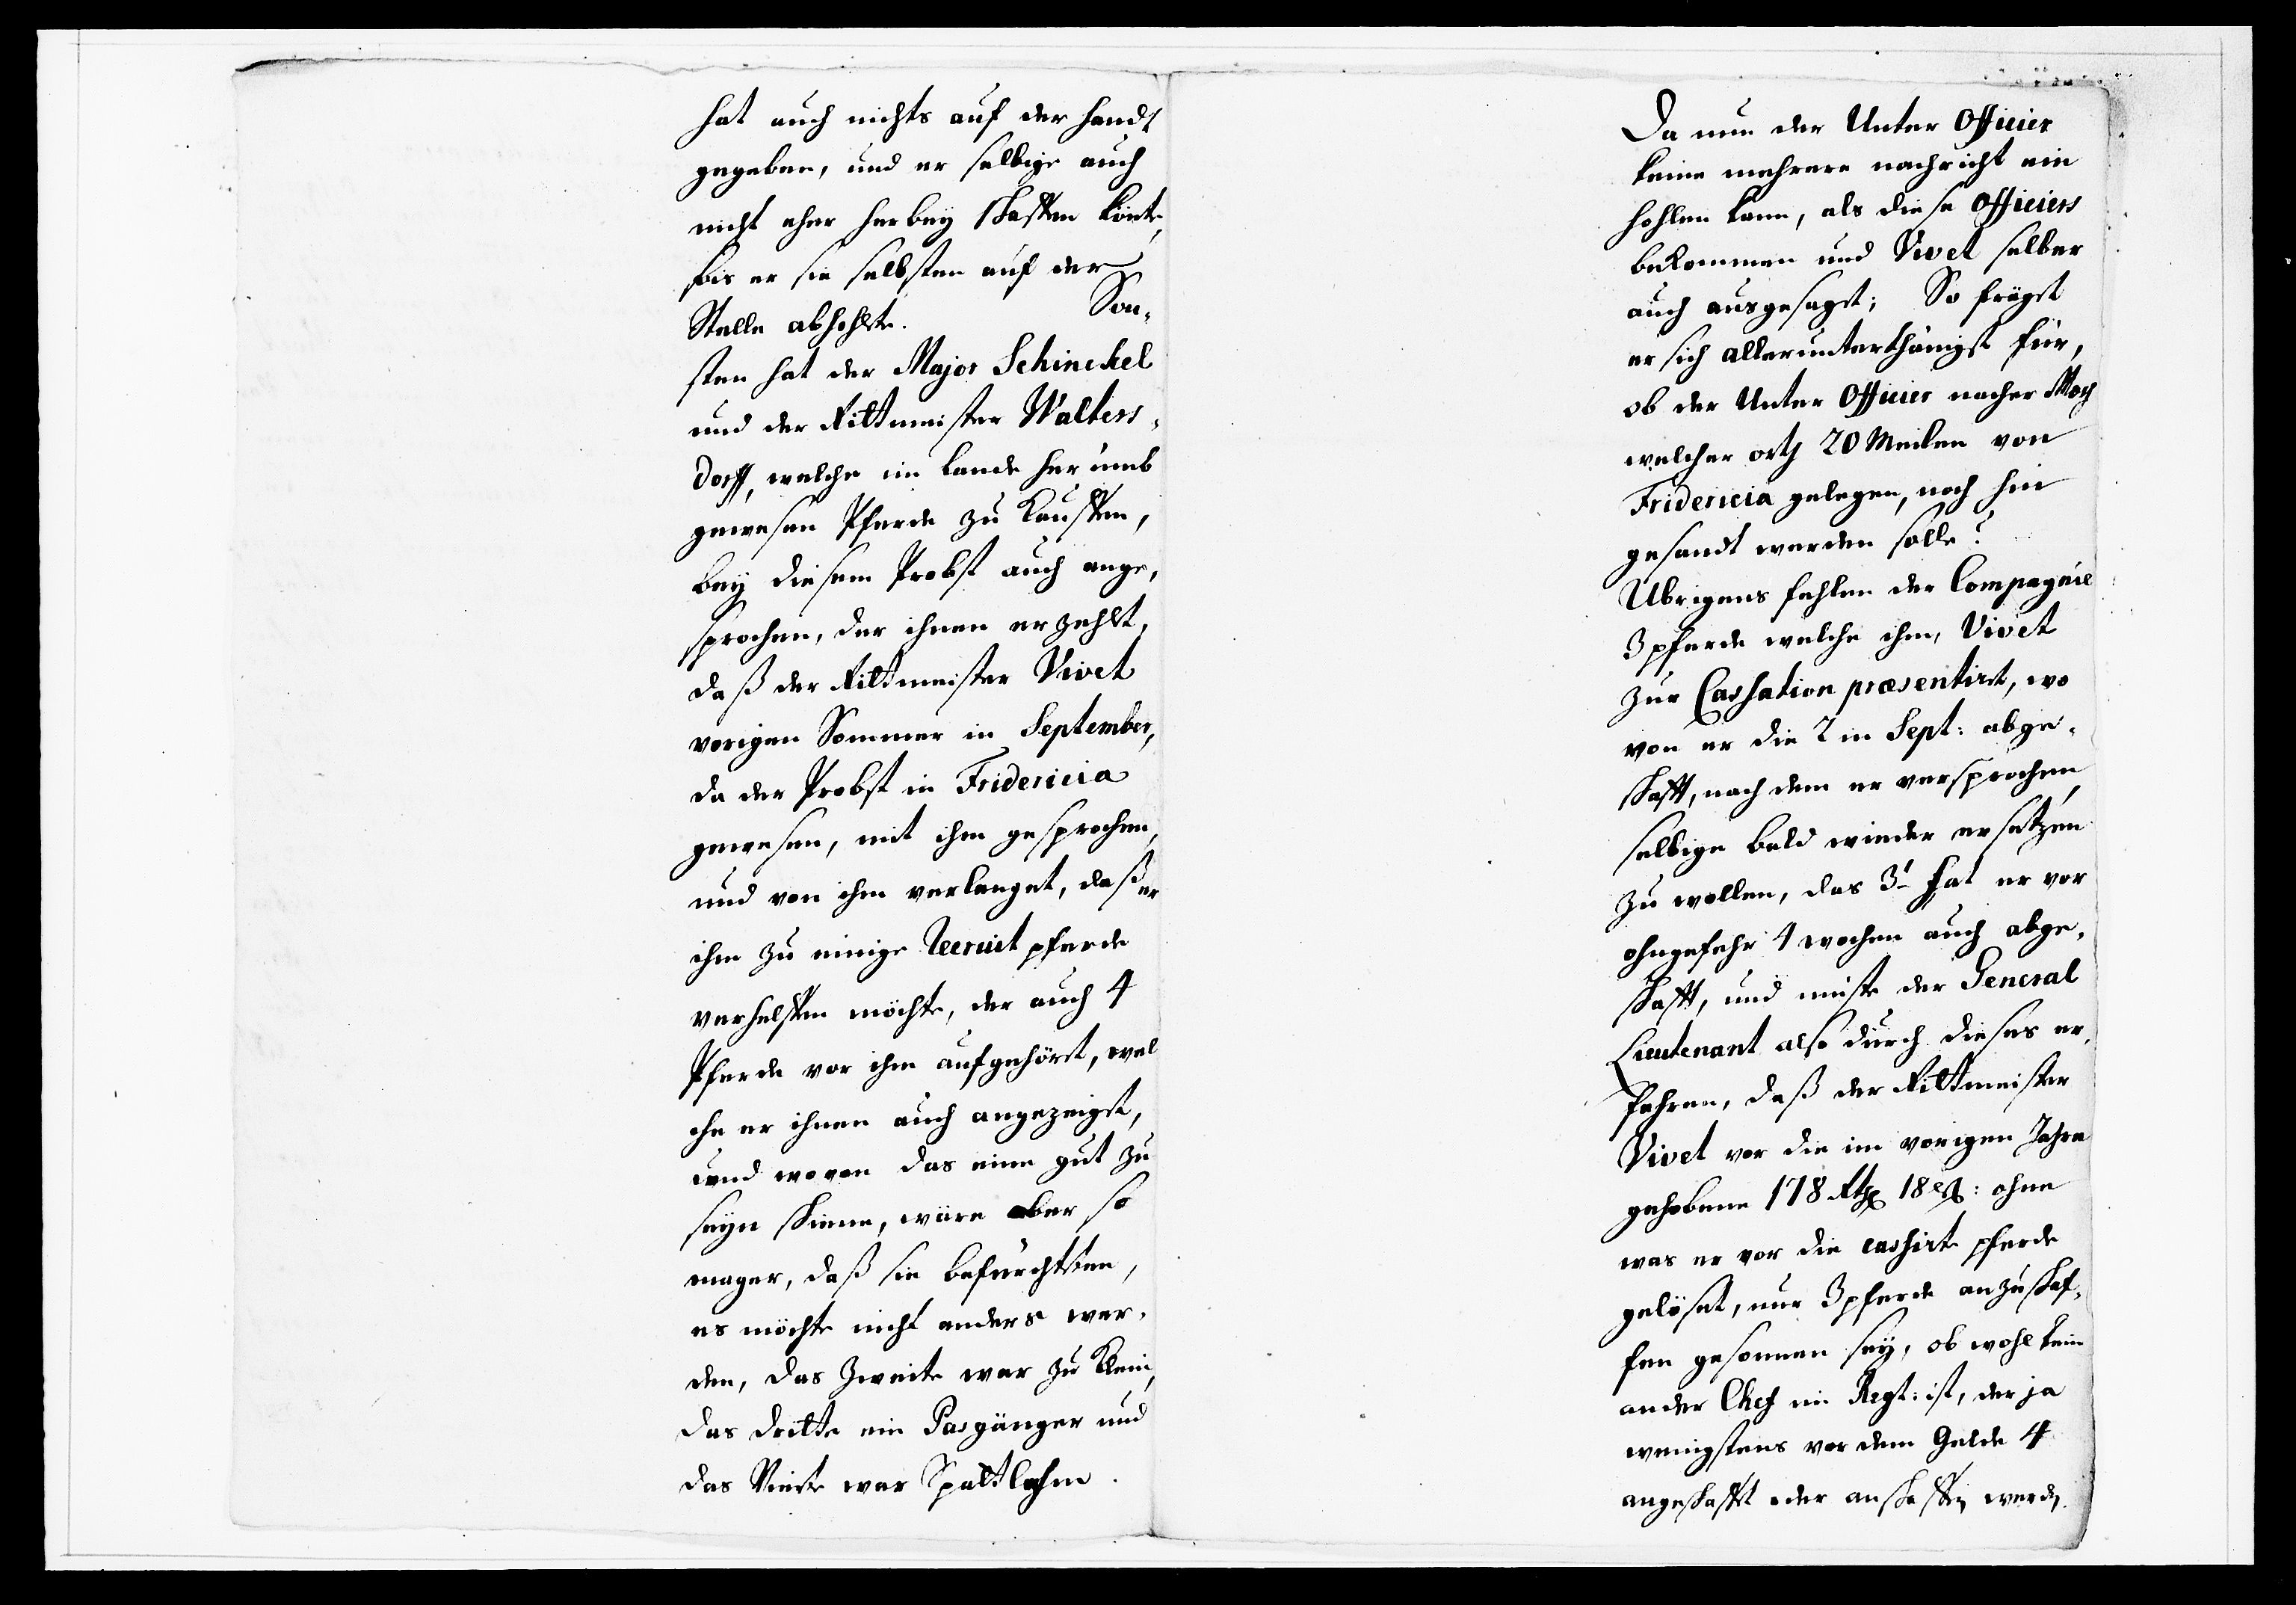 hat auch nichts auf der handt
gegeben, und er selbige auch
nicht eher herbey schaffen könte,
bis er sie selbsten auf der
Stelle abhohlte. Son-
sten hat der Major Schinckel
und der Rittmeister Walters-
dorff, welche im lande her umb
gewesen Pferde zu kauffen,
bey diesem Probst auch ange-
sprochen, der ihnen erzehlt,
daß der Rittmeister Vivet
vorigen Sommer in September,
da der Probst in Fridericia
gewesen, mit ihm gesprochen,
und von ihm verlanget, daß er
ihm zu einige Recruit pferde
verhelffen möchte, der auch 4
Pferde vor ihm aufgehört, wel
che er ihnen auch angezeigt,
und wovon das eine gut zu
seyn schiene, wäre aber so
mager, daß sie befürchteten,
es möchte nicht anders wer-
den, das Zweite war zu klein,
das dritte ein Pasgänger und
das Vierte war Spattlahm.
Da nun der Unter Officier
keine mehrere nachricht ein
hohlen kann, als diese Officiers
bekommen und Vivet selber
auch ausgesagt; So frägt
er sich allerunterthänigst für,
ob der Unter Officier nacher
welcher orth 20 Meilen von
Fridericia gelegen, noch hin
gesandt werden solle?
Ubrigens fehlen der Compagnie
3 pferde welche ihm, Vivet
zur Cassation præsentirt, wo
von er die 2 in Sept: abge-
schafft, nach dem er versprochen,
selbige bald wieder ersetzen
zu wollen, das 3t hat er vor
ohngefehr 4 wochen auch abge-
schafft, und muste der General
Lieutenant also durch dieses er-
fahren, daß der Rittmeister
Vivet vor die im vorigen Jahre
gehobene 178 Rthr 18 ß: ohne
was er vor die cassirte pferde
gelöset, nur 3 pferde anzuschaf-
fen gesonnen sey, ob wohl kein
ander Chef im Regt: ist, der ja
wenigstens vor dem Gelde 4
angeschafft oder anschaffen werde.